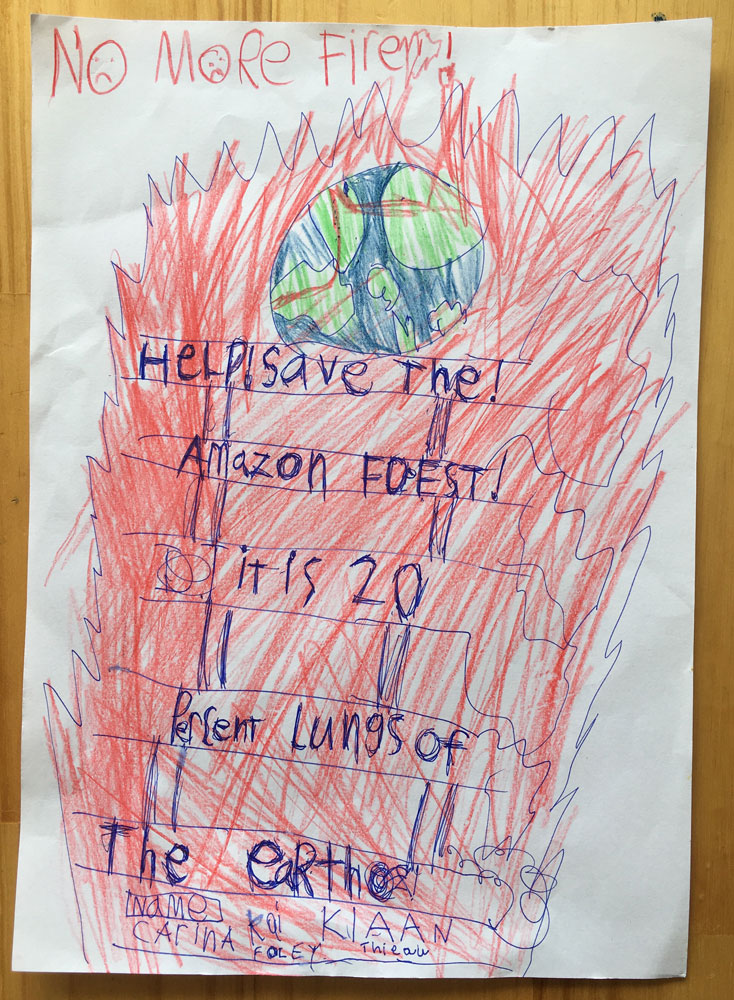 No More Fires!
HELP! Save The!
Amazon FOREST!
it is 20
Percent Lungs of
The earth
Name
CARINA Kai KIAAN
FOLEY Thieaw